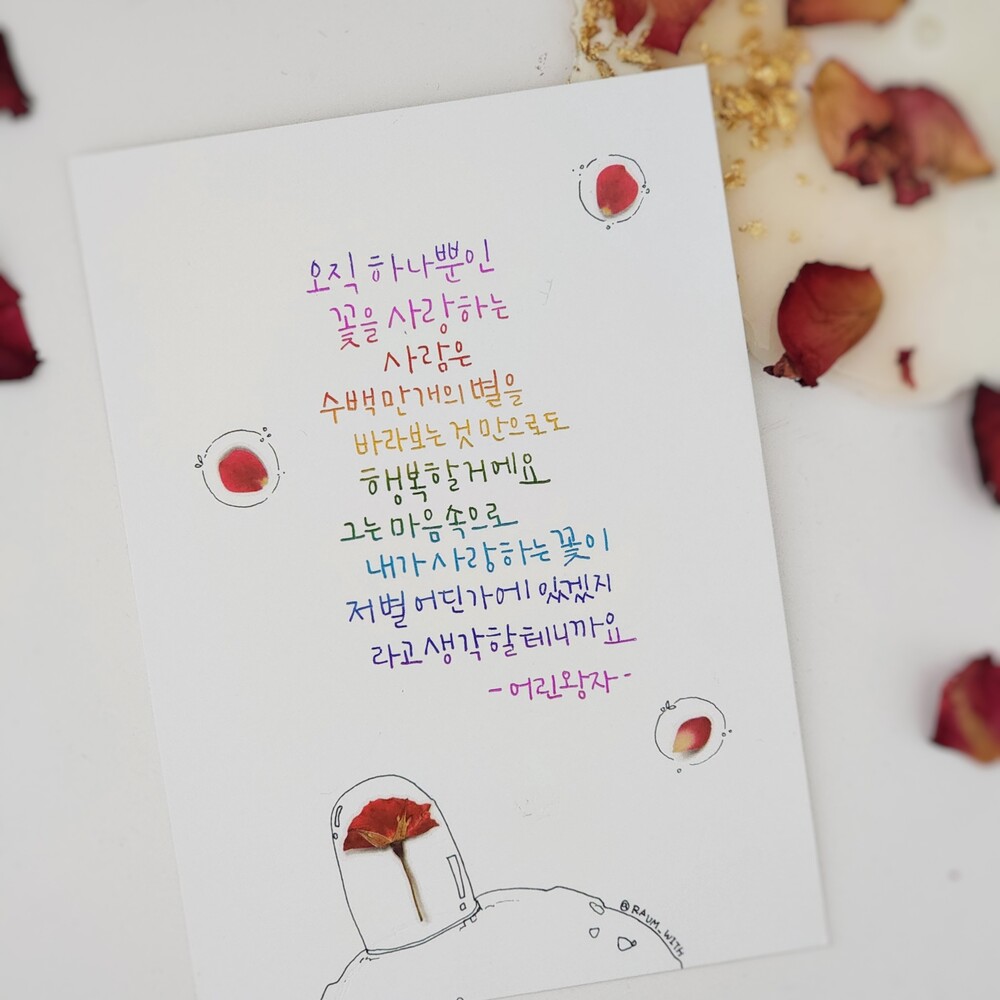 오직 하나뿐인
꽃을 사랑하는
사람은
수백만개의 별을
바라보는 것 만으로도
행복할거에요
그는 마음속으로
내가 사랑하는 꽃이
저별 어딘가에 있겠지
라고 생각할테니까요
- 어린왕자 -
@RAUM_WITH